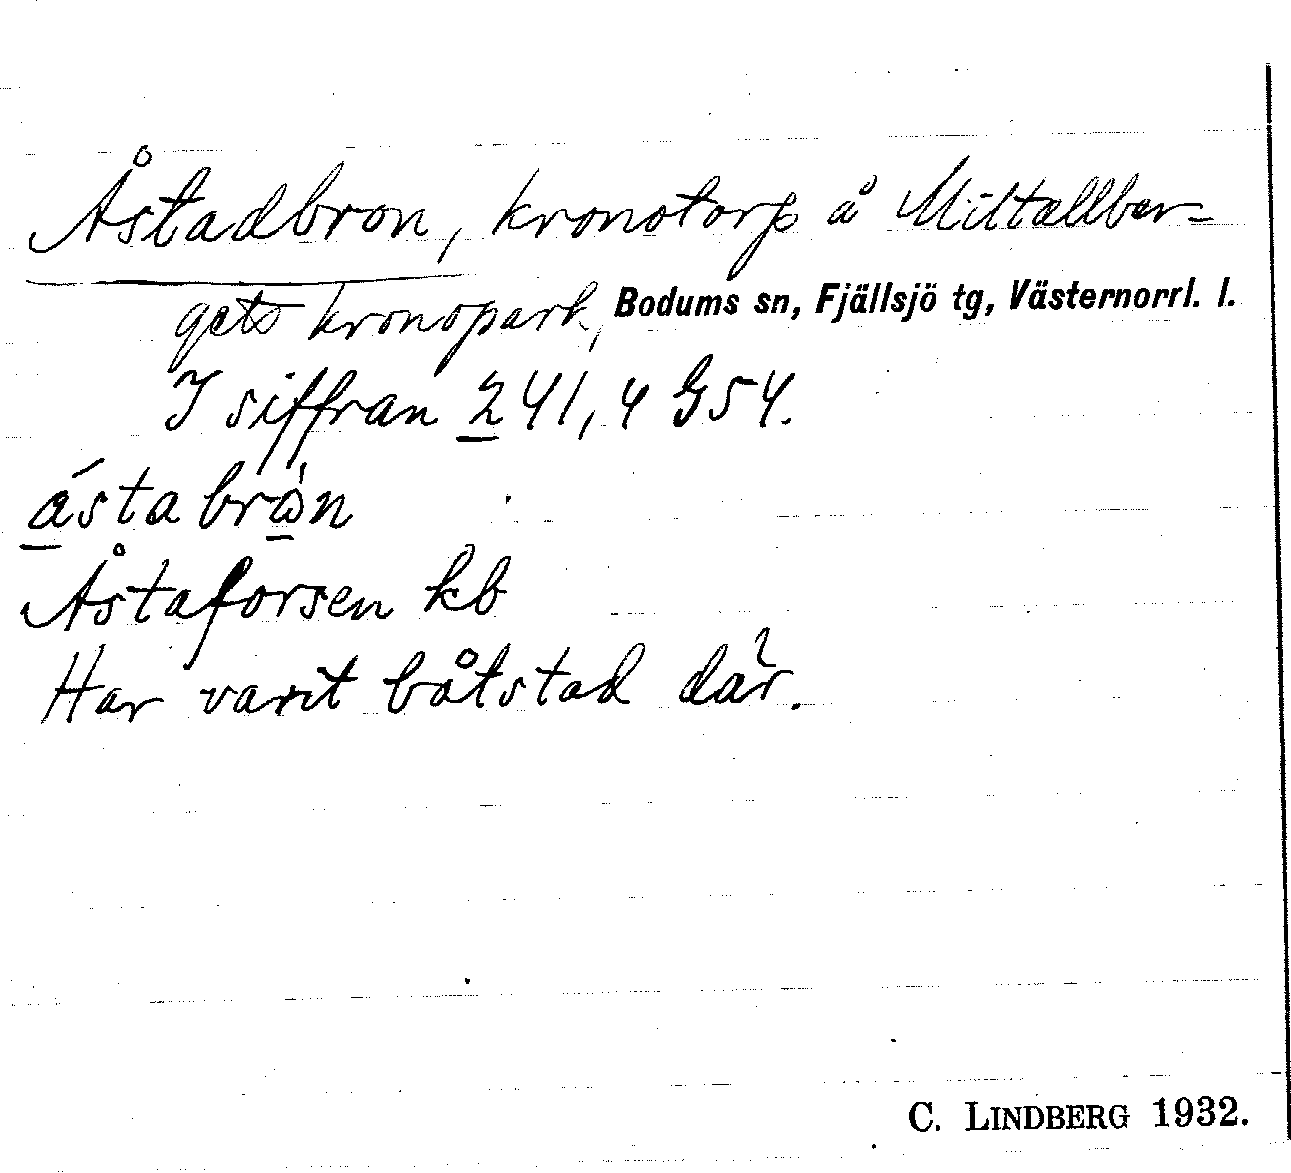 Åstadbron, kronotorp å Mittallber=
gets kronopark, Bodums sn, Fjällsjö tg, Västernorrl. l.
I siffran 241,4 G54.
ásta bròn
Åstaforsen kb
Har varit båtstad där.
C. LINDBERG 1932.